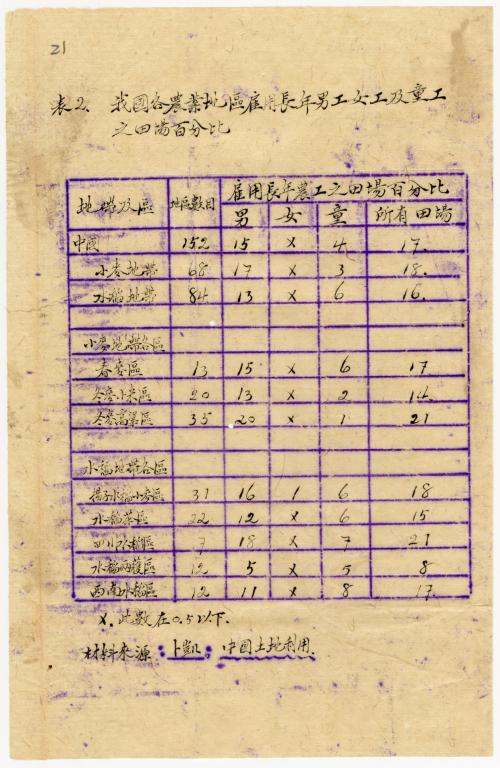 21
表2. 我國各農業地區雇用長年男工女工及童工
之田場百分比
地帶及區 地區數目 雇用長年農工之田場百分比
男 女 童 所有田場
中國 152 15 x 4 17.
小麥地帶 68 17 x 3 18.
水稻地帶 84 13 x 6 16.
小麥地帶各區
春麥區 13 15 x 6 17
冬麥小米區 20 13 x 2 14.
冬麥高粱區 35 20 x 1 21
水稻地帶各區
揚子水稻小麥區 31 16 1 6 18
水稻茶區 22 12 x 6 15
四川水稻區 7 18 x 7 21
水稻兩穫區 12 5 x 5 8
西南水稻區 12 11 x 8 17.
x. 此數在0.5以下.
材料來源：卜凱：中國土地利用.